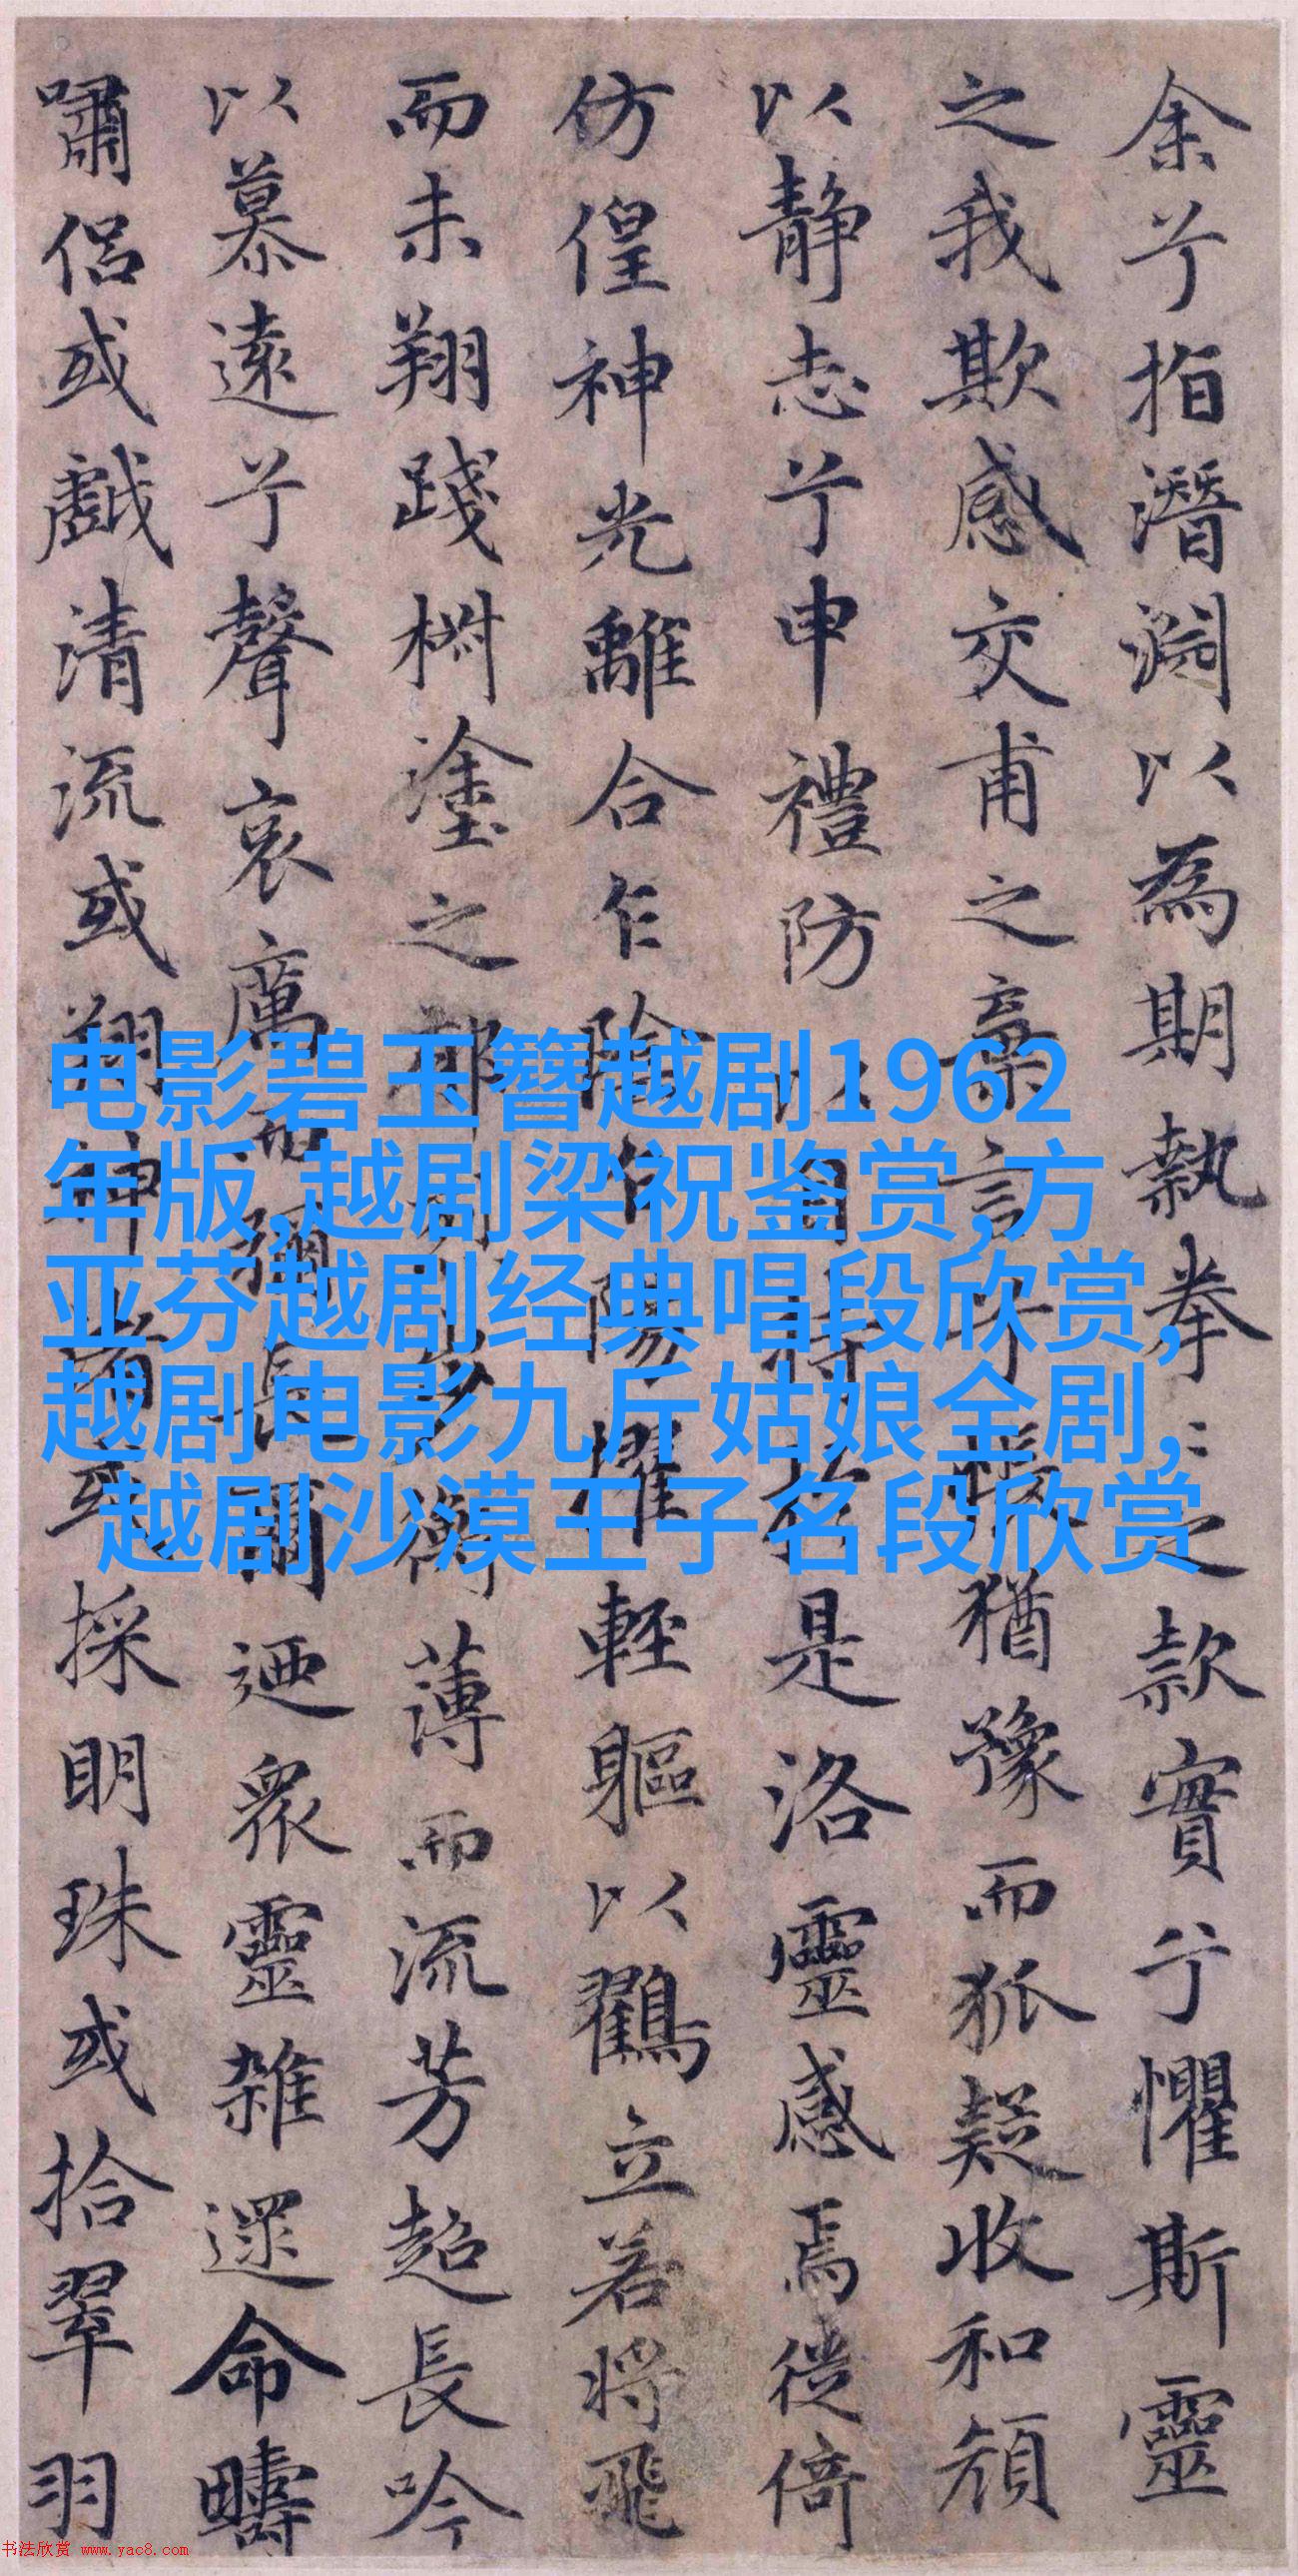 余兮指潛淵以為期執拳〻之款實兮懼斯靈
之我欺感交甫之棄言兮悵猶豫而狐疑收和顔
以靜志兮申禮防以自持於是洛靈感焉徙倚
仿偟神光離合乍陰乍陽擢輕軀以鶴立若將飛
而未翔踐椒塗之郁烈步蘅薄而流芳超長吟
以慕遠兮聲哀厲而彌長爾迺衆靈雜遝命疇
嘯侶或戲清流或翔神渚或採明珠或拾翠羽
电影碧玉簪越剧1962
年版,越剧梁祝鉴赏,方
亚芬越剧经典唱段欣赏,
越剧电影九斤姑娘全剧,
越剧沙漠王子名段欣赏
书法欣赏 www.yac8.com